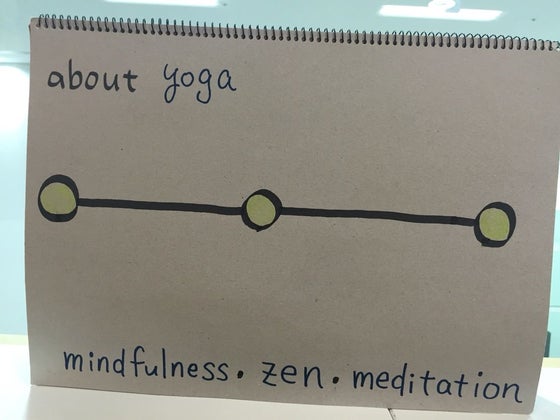 about yoga
mindfulness・zen・meditation